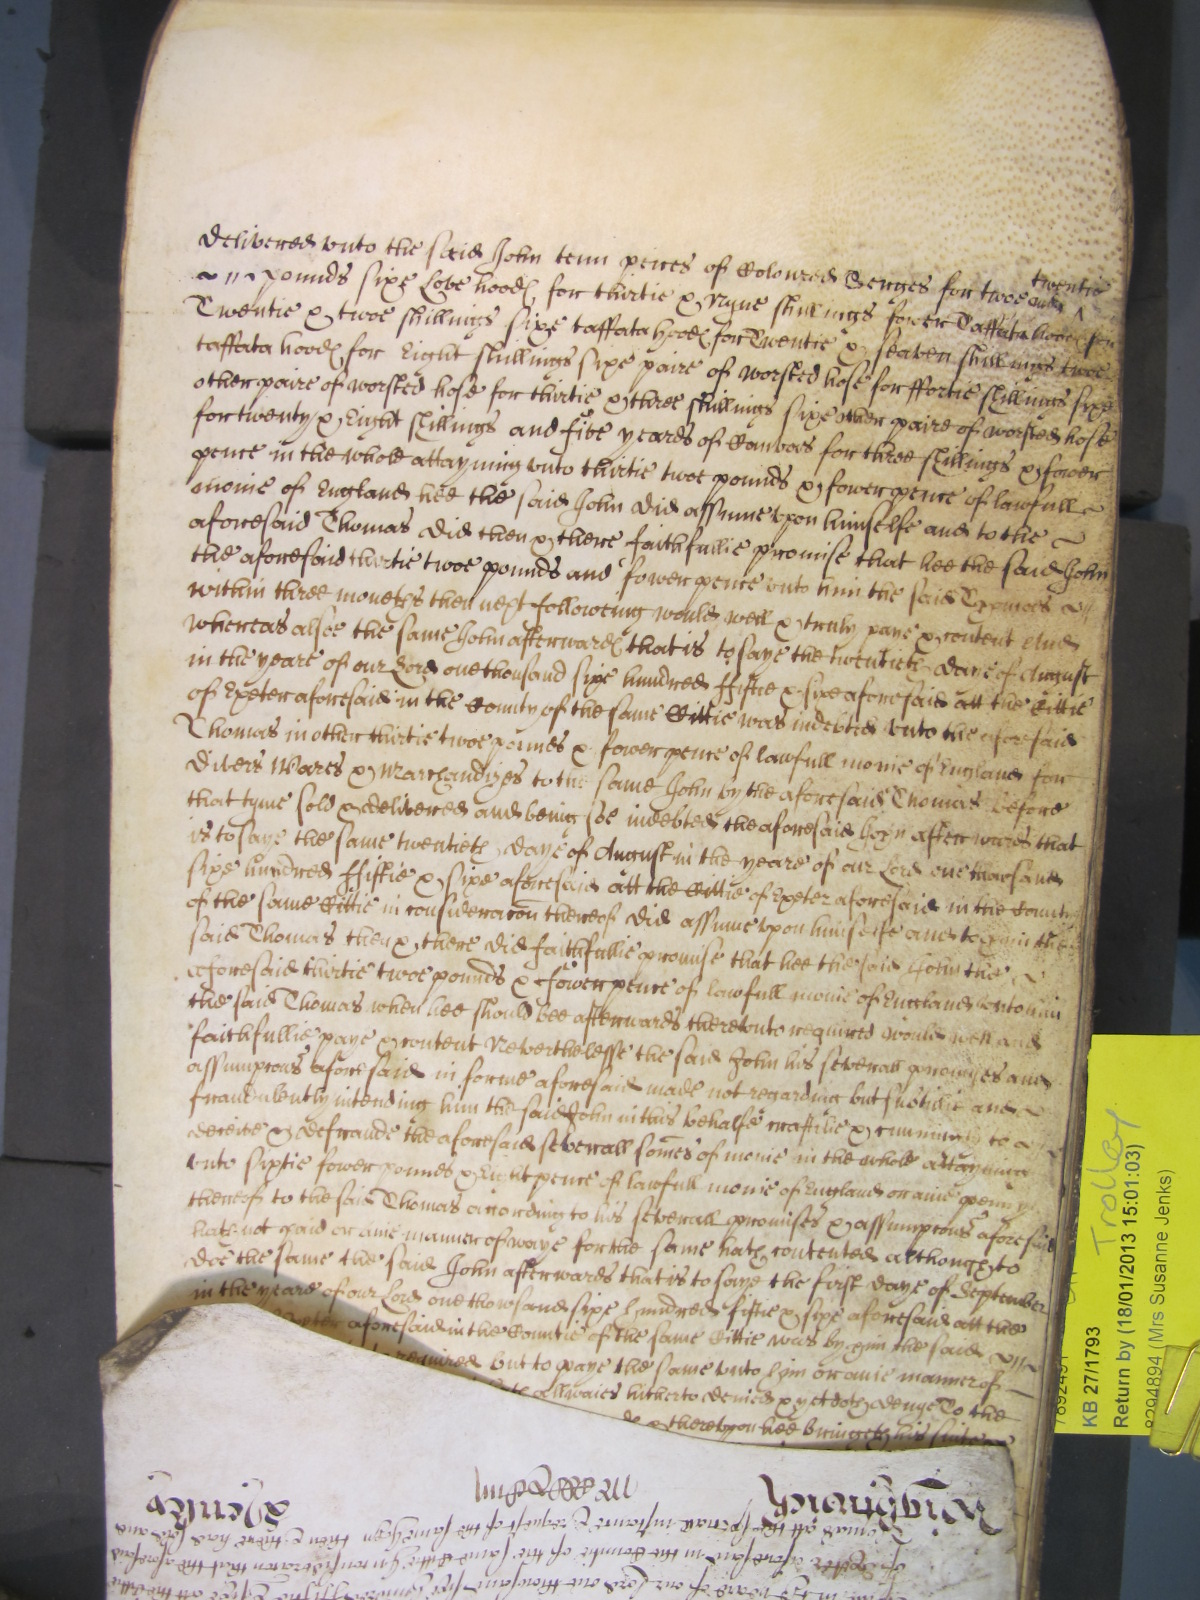 delivered unto the said John tenn peices of Coloured Serges for twoe and twentie
pounds sixe Love hoods for thirtie & Nyne shillings fower Taffata hoods for
Twentie & twoe shillings sixe taffata hoods for Twentie & seaven shillings twoe
taffata hoods for Eight shillings sixe paire of worsted hose for ffortie shillings sixe
other paire of worsted hose for thirtie & three shillings sixe other paire of worsted hose
for twenty & Eight shillings and five yeards of Canvas for three shillings & fower
pence in the whole attayning unto thirtie twoe pounds & fower pence of lawfull
monie of England hee the said John did assume upon himselfe and to the
aforesaid Thomas did then & there faithfullie promise that hee the said John
the aforesaid thirtie twoe pounds and fower pence unto him the said Thomas
within three moneths then next followeing would well & truly paye & content And
whereas alsoe the same John afterwards that is to saye the twentieth daye of August
in the yeare of our Lord one thousand sixe hundred ffiftie & sixe aforesaid att the Cittie
of Exeter aforesaid in the County of the same Cittie was indebted unto the aforesaid
Thomas in other thirtie twoe pounds & fower pence of lawfull monie of England for
divers Wares & Marchandizes to the same John by the aforesaid Thomas before
that tyme sold & delivered and being soe indebted the aforesaid John afterwards that
is to saye the same twentieth daye of August in the yeare of our Lord one thowsand
sixe hundred ffiftie & sixe aforesaid att the Cittie of Exeter aforesaid in the County
of the same Cittie in consideracon thereof did assume upon himselfe and to him the
said Thomas then & there did faithfullie promise that hee the said John the
aforesaid thirtie twoe pounds & fower pence of lawfull monie of England unto him
the said Thomas when hee should bee afterwards thereunto required would well and
faithfullie paye & content Neverthelesse the said John his severall promises and
assumpcons aforesaid in forme aforesaid made not regarding but subtillie and
fraudulently intending him the said John in this behalfe craftilie & cunningly to
deceive & defraude the aforesaid severall somes of monie in the whole attayning
unto sixtie fower pounds & Eight pence of lawfull monie of England or anie penny
thereof to the said Thomas according to his severall promises & assumpcons aforesaid
hath not paid or anie manner of waye for the same hath contented although to
doe the same the said John afterwards that is to saye the first daye of September
in the yeare of our Lord one thowsand sixe hundred fiftie & sixe aforesaid att the
aforesaid in the Countie of the same Cittie was by him the said
required but to paye the same unto him or anie manner of
allwaies hitherto denied & yet doth denye To the
& thereupon hee bringeth his suite
KB 27/1793
Trolley
Return by (18/01/2013 15:01:03)
8294894 (Mrs Susanne Jenks)